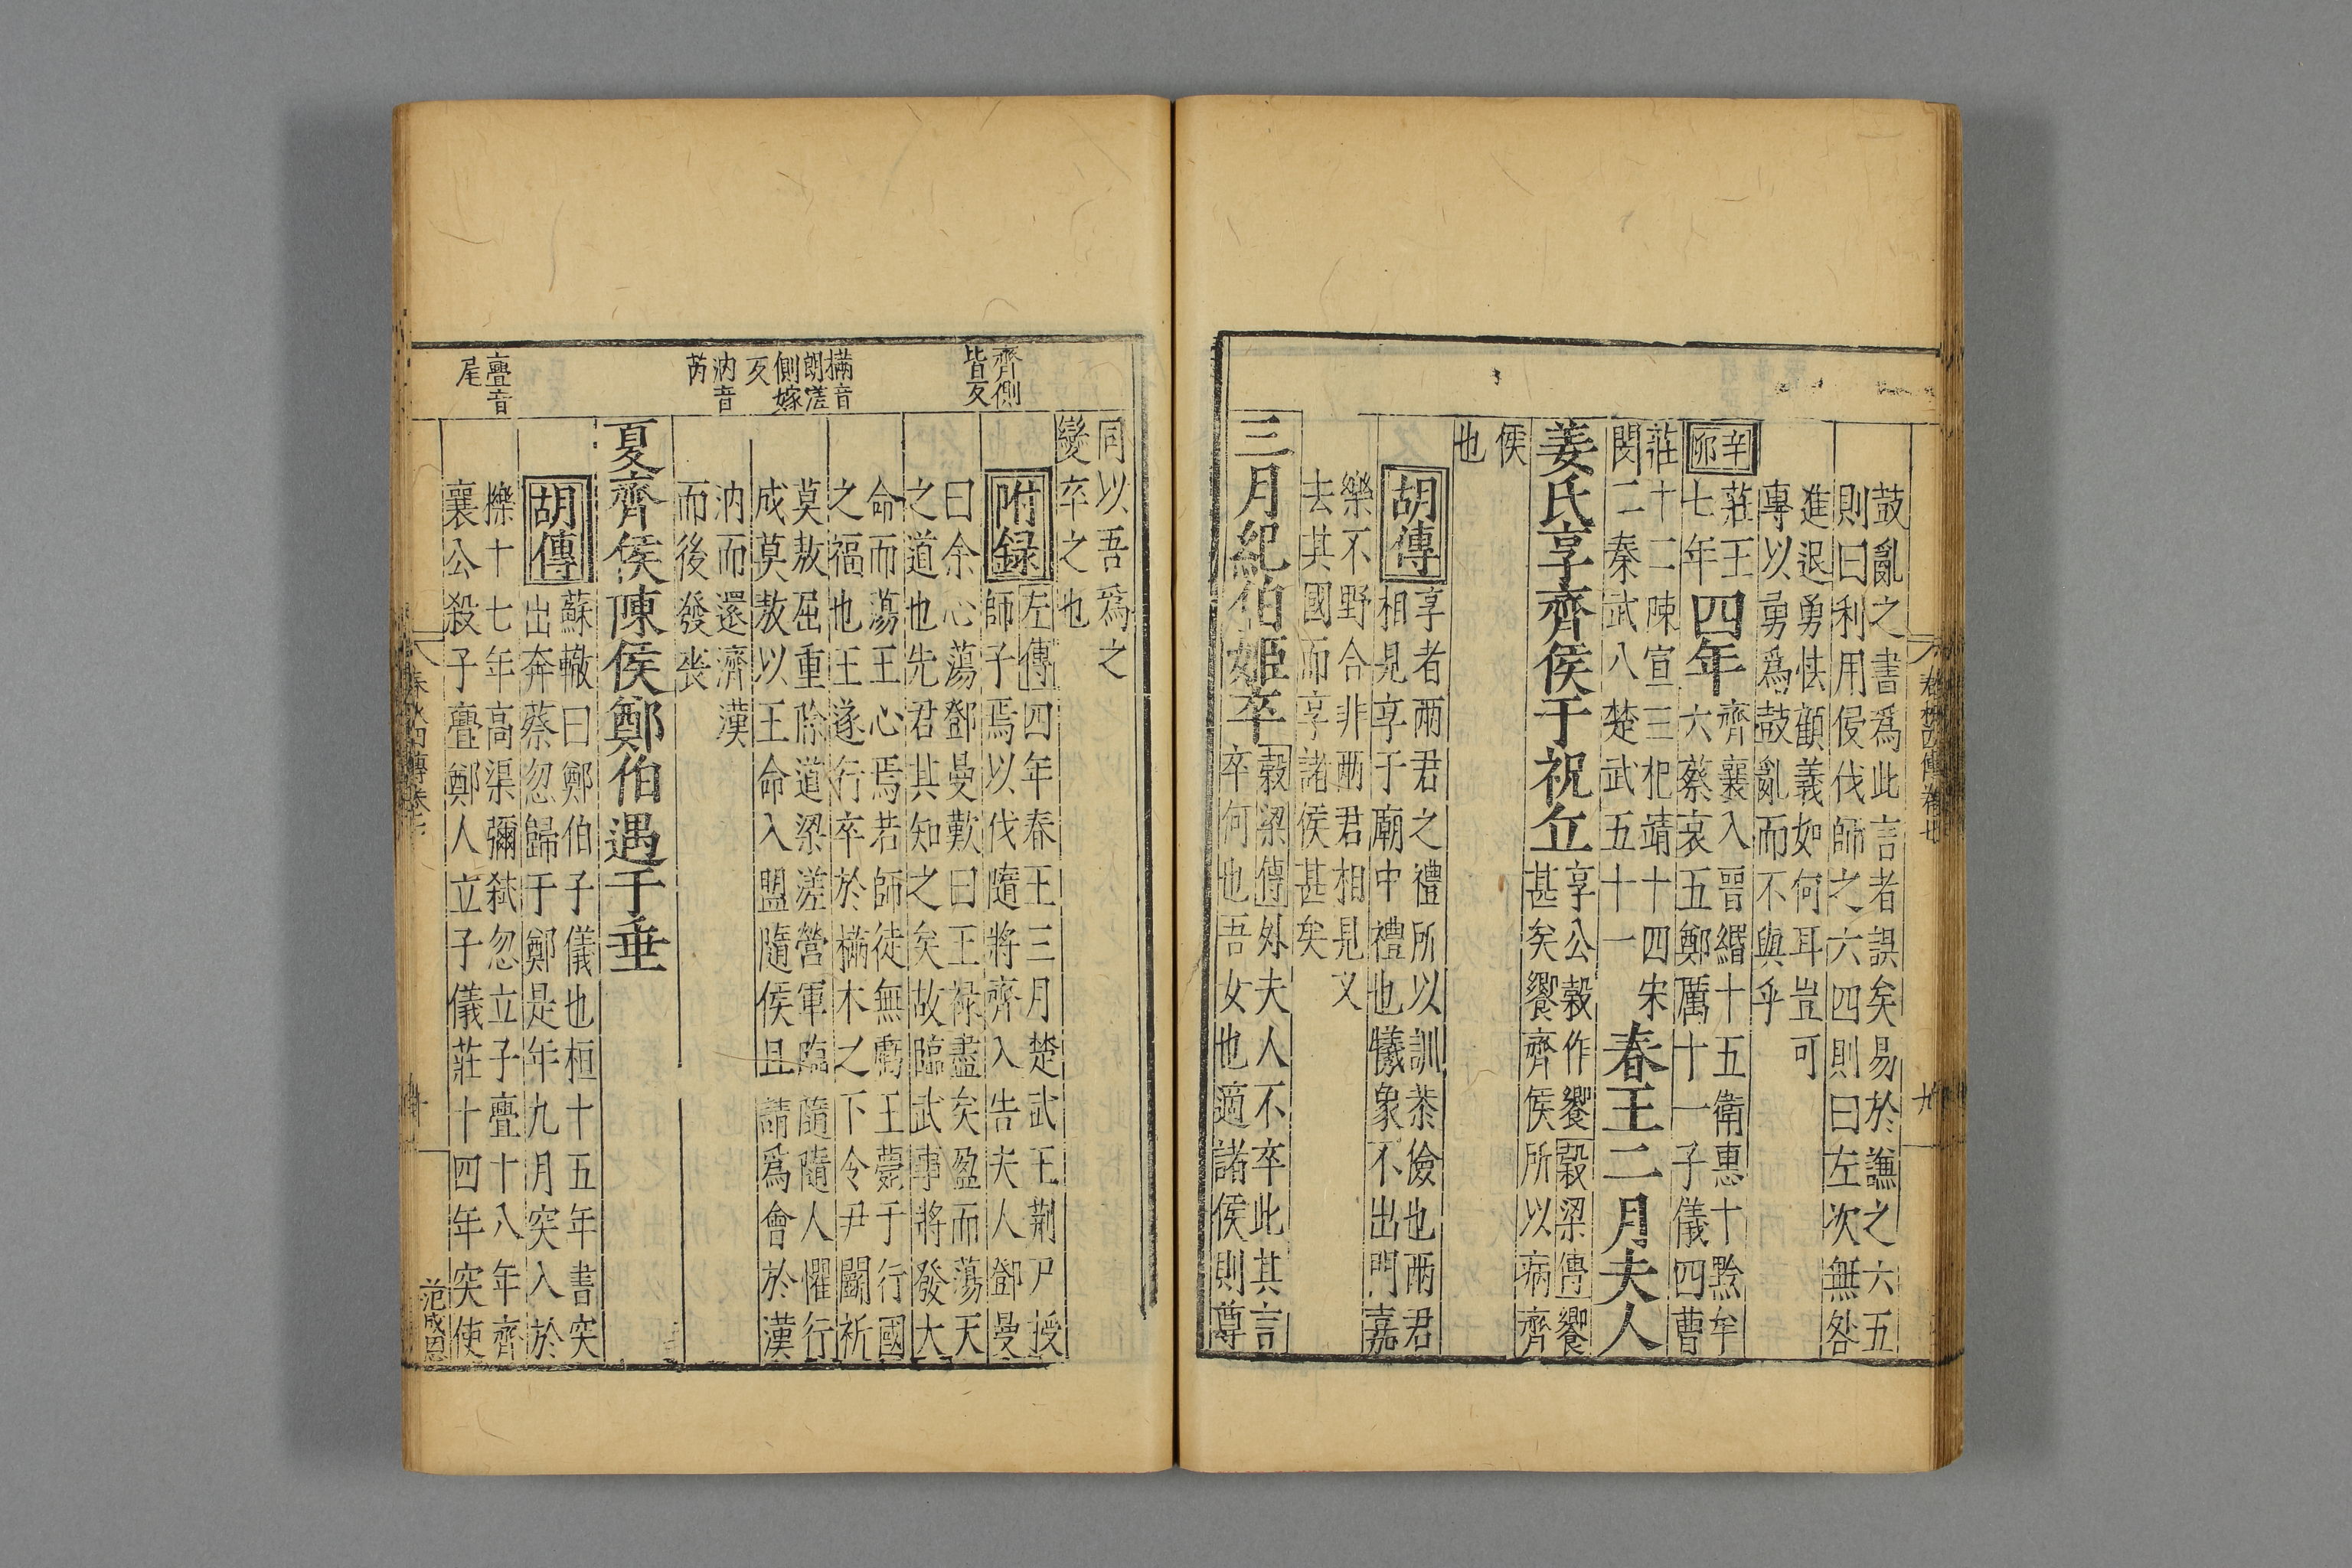 鼓亂之書爲此言者誤矣易於謙之六五
則曰利用侵伐師之六四則曰左次無咎
進退勇怯顧義如何耳豈可
專以勇爲鼓亂而不與乎
辛卯
莊王七年
四年
齊襄入晉緡十五衛惠十黔牟
六蔡哀五鄭厲十一子儀四曹
莊十二陳宣三杞靖十四宋
閔二秦武八楚武五十一
春王二月夫人
姜氏享齊侯于祝丘
享公穀作饗穀梁傳饗
甚矣饗齊侯所以病齊
侯
也
胡傳
享者兩君之禮所以訓恭儉也兩君
相見享于廟中禮也犧象不出門嘉
樂不野合非兩君相見又
去其國而享諸侯甚矣
三月紀伯姬卒
穀梁傳外夫人不卒此其言
卒何也吾女也適諸侯則尊
同以吾爲之
變卒之也
附録
左傳四年春王三月楚武王荆尸授
師孑焉以伐隨將齊入告夫人鄧曼
曰余心蕩鄧曼歎曰王禄盡矣盈而蕩天
之道也先君其知之矣故臨武事將發大
命而蕩王心焉若師徒無虧王薨于行國
之福也王遂行卒於樠木之下令尹鬭祈
莫敖屈重除道梁溠營軍臨隨隨人懼行
成莫敖以王命入盟隨侯且請爲會於漢
汭而還濟漢
而後發喪
夏齊侯陳侯鄭伯遇于垂
胡傳
蘇轍曰鄭伯子儀也桓十五年書突
出奔蔡忽歸于鄭是年九月突入於
櫟十七年高渠彌弑忽立子亹十八年齊
襄公殺子亹鄭人立子儀莊十四年突使
齊側
皆反
樠音
朗溠
側嫁
反
汭音
芮
亹音
尾
春秋四傳卷七
九
范成恩